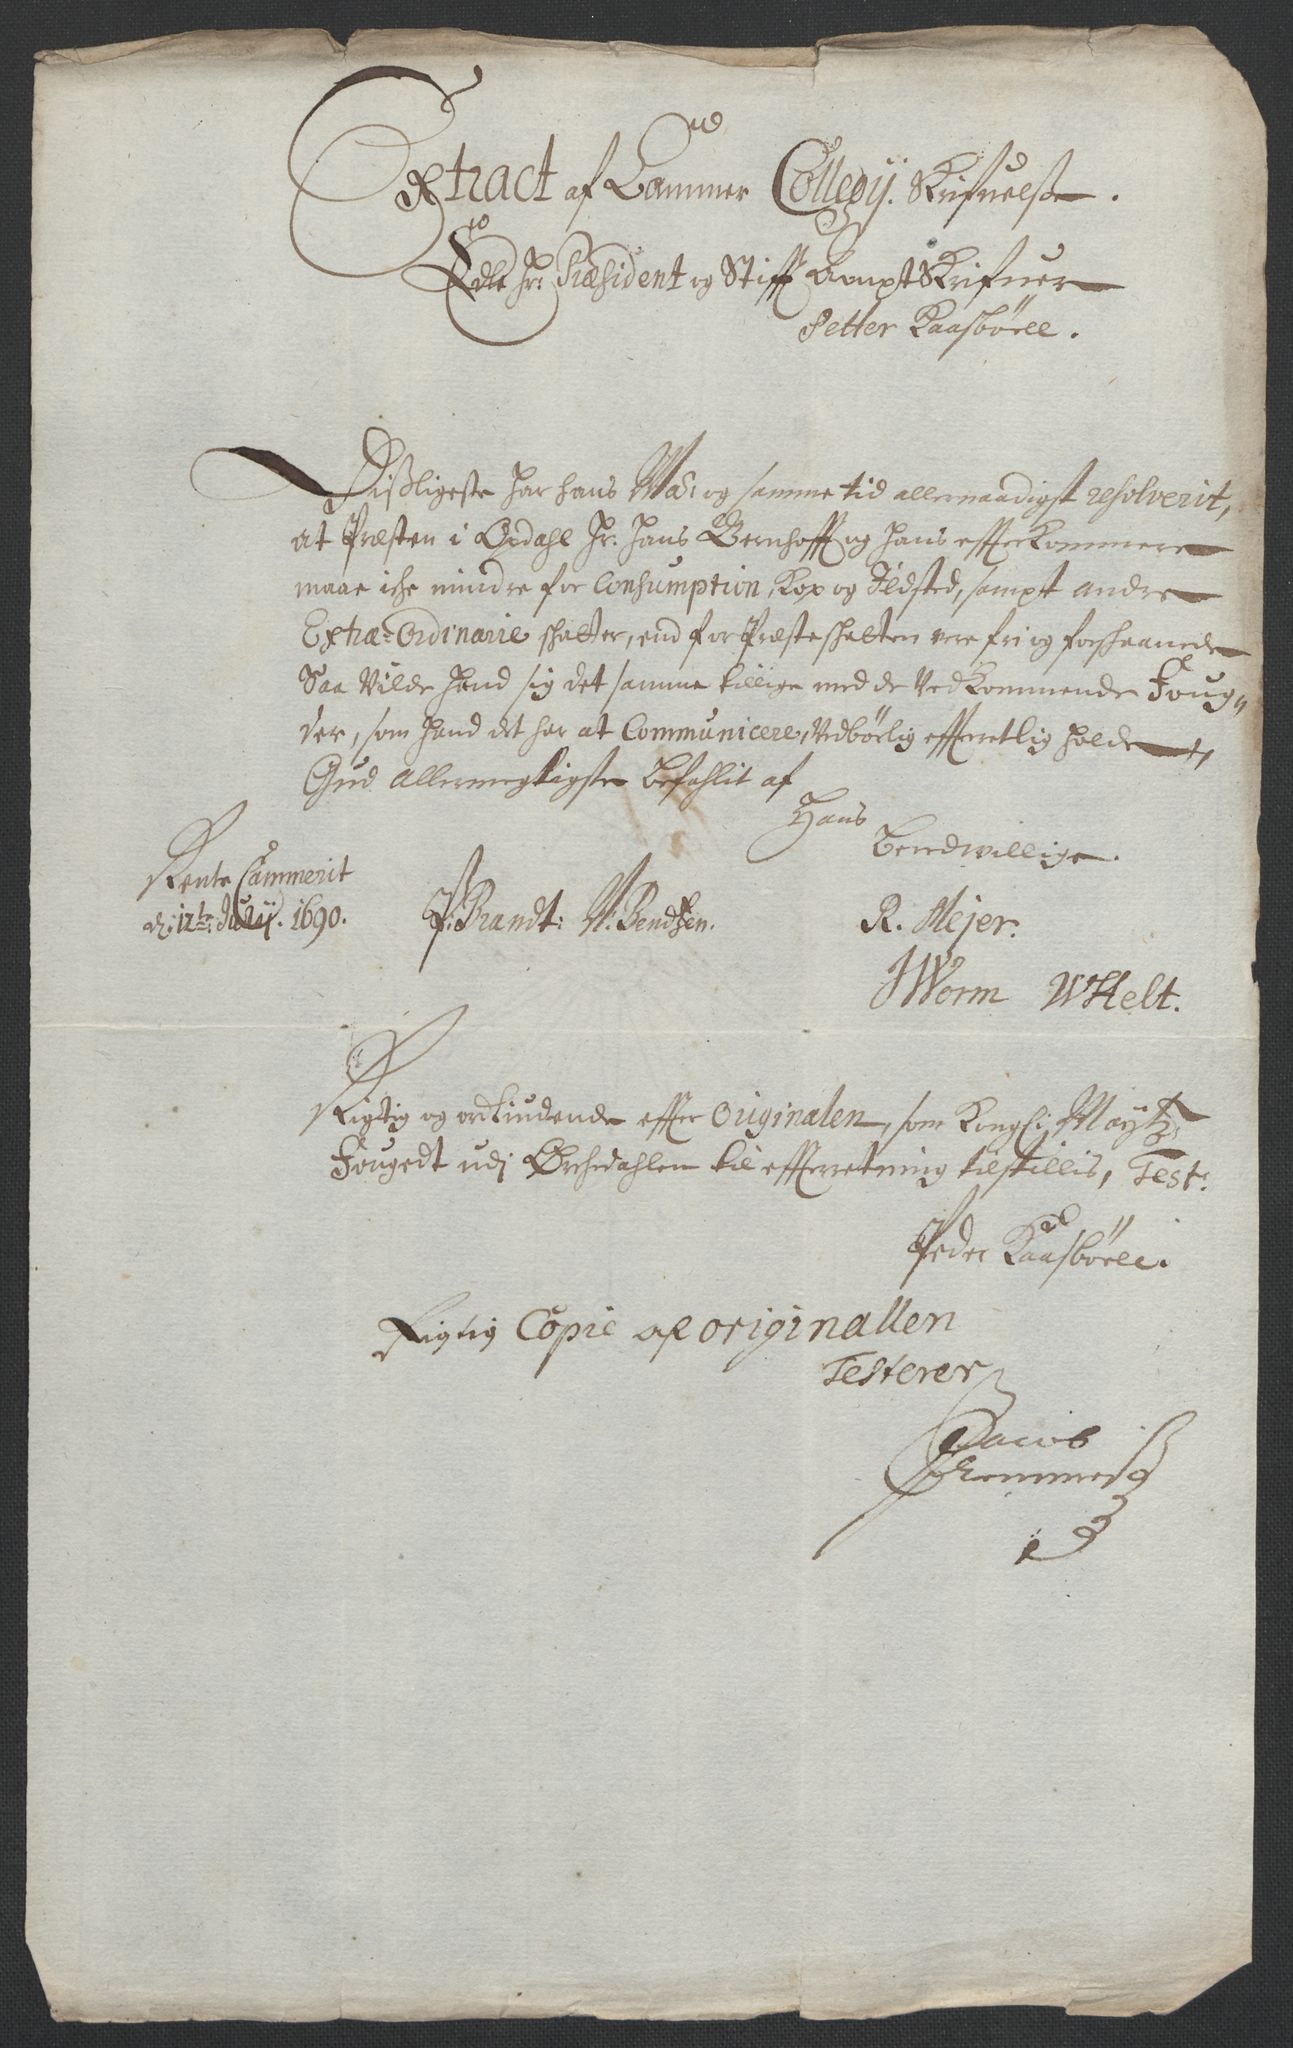 Extract af Cammer Collegij Skrifuelse.
Edle Hr: Præsident og Stifft Ampt Skrifuer
Petter Kaasbøell.
Disligeste har hans Maÿ: og samme tid allernaadigst resolverit,
at Præsten i Opdahl Hr: Hans Bernhofft og hans effterkommere
maae iche mindre for Consumption, Kop og Ildsted, sampt andre
Extra-Ordinarie skatter, end for Præsteskatten vere fri og forskaanede
Saa Vilde hand sig det samme tillige med de Vedkommende Foug¬
der, som hand det har at Communicere, Vedbørlig effterretlig holde,
Gud Allermegtigste befahlit af
Hans
Tienstvillige.
Rente Cammerit
d: 12te Julij. 1690.
P: Brandt: N: Bendtzen. R. Mejer.
JWorm WHelt.
Rigtig og ordliudende effter Originalen, som Kongl: Maytz:
Fougedt udj Ørchedahlen til effterretning tilstillis, Test:
Peder Kaasbøell.
Rigtig Copie af originallen
Testerer
Jacob